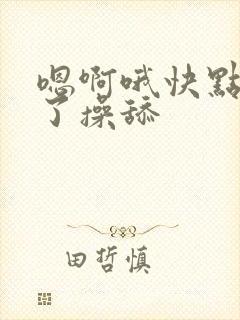 嗯啊哦快點
了操舔
田哲慎